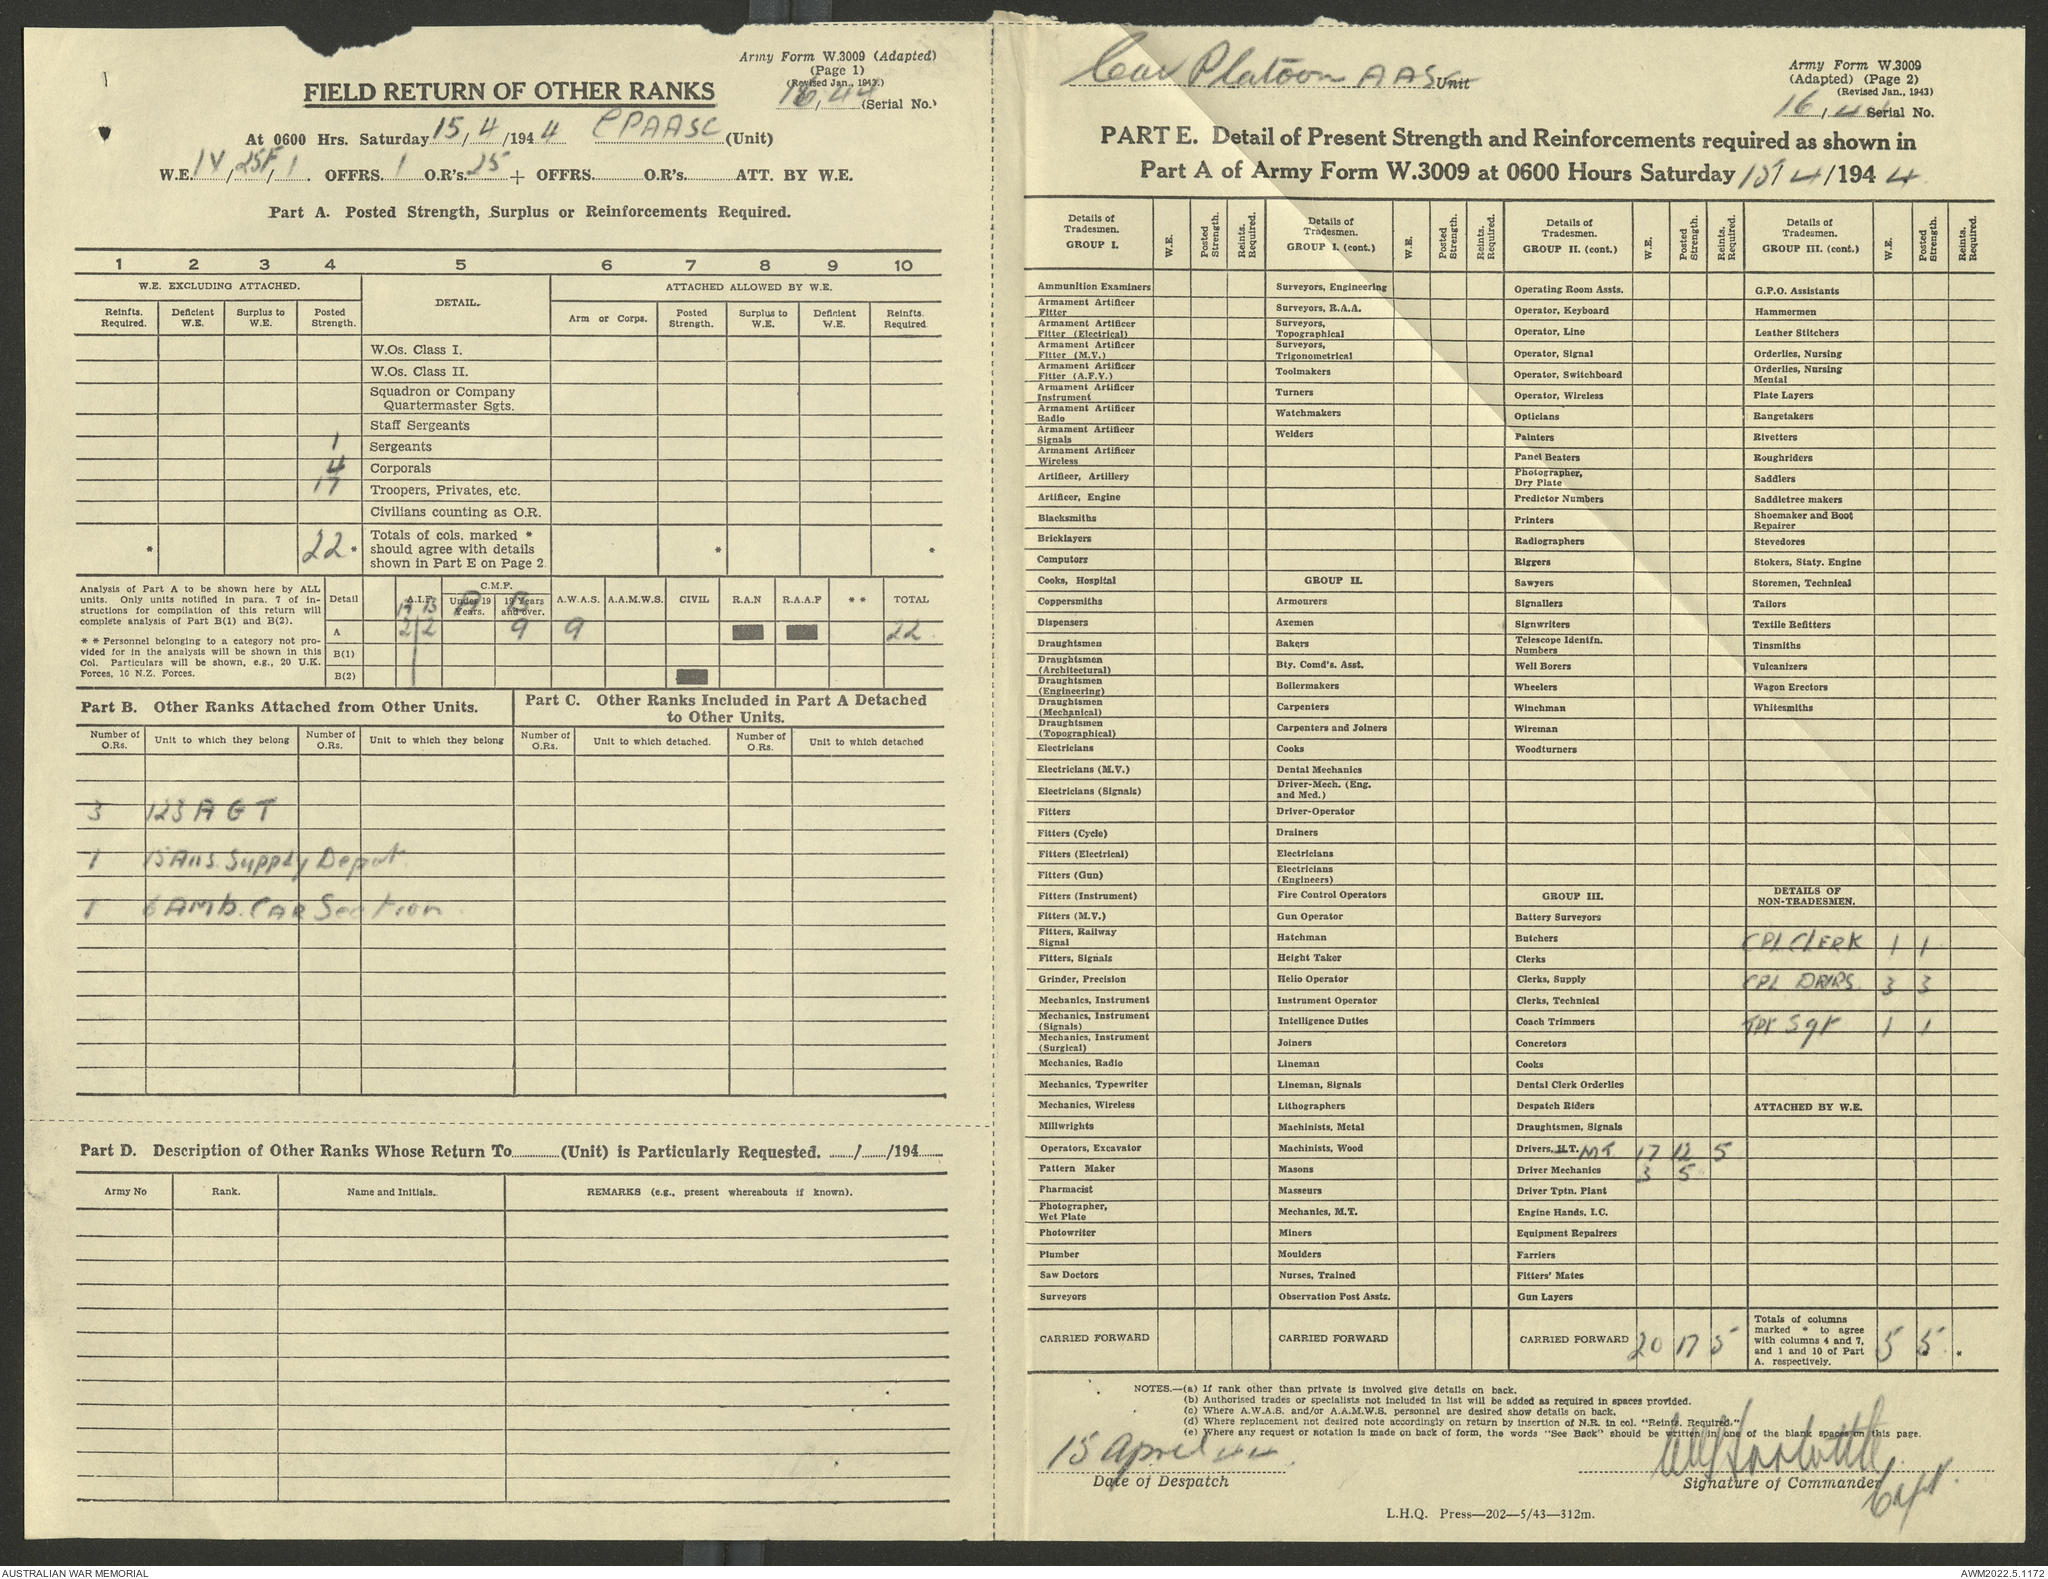 Army Form W.3009 (Adapted)
(Page 1)
(Revised Jan., 1943.)
16/44 (Serial No.)
FIELD RETURN OF OTHER RANKS
At 0600 Hrs. Saturday 15/4/1944 CPAASC (Unit)
W.E. IV/25F/1. OFFRS. 1 O.R's. 25 + OFFRS. O.R's. ATT. BY W.E.
Part A. Posted Strength, Surplus or Reinforcements Required.
1 2 3 4 5 6 7 8 9 10
W.E. EXCLUDING ATTACHED. DETAIL. ATTACHED ALLOWED BY W.E.
Reinfts. Required. Deficient W.E. Surplus to W.E. Posted Strength. Arm or Corps. Posted Strength. Surplus to W.E. Deficient W.E. Reinfts. Required
W.Os. Class I.
W.Os. Class II.
Squadron or Company Quartermaster Sgts.
Staff Sergeants
1 Sergeants
4 Corporals
17 Troopers, Privates, etc.
Civilians counting as O.R.
* 22 * Totals of cols. marked * should agree with details shown in Part E on Page 2. * *
Analysis of Part A to be shown here by ALL units. Only units notified in para. 7 of instructions for compilation of this return will complete analysis of Part B(1) and B(2).
* * Personnel belonging to a category not provided for in the analysis will be shown in this Col. Particulars will be shown, e.g., 20 U.K. Forces, 10 N.Z. Forces.
Detail A.I.F. C.M.F. Under 19 Years. 19 Years and over. A.W.A.S. A.A.M.W.S. CIVIL R.A.N R.A.A.F * * TOTAL
A 2 2 9 9 22
B(1)
B(2)
Part B. Other Ranks Attached from Other Units.
Part C. Other Ranks Included in Part A Detached to Other Units.
Number of O.Rs. Unit to which they belong Number of O.Rs. Unit to which they belong Number of O.Rs. Unit to which detached. Number of O.Rs. Unit to which detached
3 123 A G T
1 15 Aus. Supply Depot.
1 6 Amb. CAR Section.
Part D. Description of Other Ranks Whose Return To (Unit) is Particularly Requested. / /194
Army No Rank. Name and Initials. REMARKS (e.g., present whereabouts if known).
Car Platoon AAS Unit
Army Form W.3009
(Adapted) (Page 2)
(Revised Jan., 1943)
16/4 Serial No.
PART E. Detail of Present Strength and Reinforcements required as shown in
Part A of Army Form W.3009 at 0600 Hours Saturday 15/4/1944
Details of Tradesmen. GROUP I. W.E. Posted Strength. Reints. Required.
Ammunition Examiners
Armament Artificer Fitter
Armament Artificer Fitter (Electrical)
Armament Artificer Fitter (M.V.)
Armament Artificer Fitter (A.F.V.)
Armament Artificer Instrument
Armament Artificer Radio
Armament Artificer Signals
Armament Artificer Wireless
Artificer, Artillery
Artificer, Engine
Blacksmiths
Bricklayers
Computors
Cooks, Hospital
Coppersmiths
Dispensers
Draughtsmen
Draughtsmen (Architectural)
Draughtsmen (Engineering)
Draughtsmen (Mechanical)
Draughtsmen (Topographical)
Electricians
Electricians (M.V.)
Electricians (Signals)
Fitters
Fitters (Cycle)
Fitters (Electrical)
Fitters (Gun)
Fitters (Instrument)
Fitters (M.V.)
Fitters, Railway Signal
Fitters, Signals
Grinder, Precision
Mechanics, Instrument
Mechanics, Instrument (Signals)
Mechanics, Instrument (Surgical)
Mechanics, Radio
Mechanics, Typewriter
Mechanics, Wireless
Millwrights
Operators, Excavator
Pattern Maker
Pharmacist
Photographer, Wet Plate
Photowriter
Plumber
Saw Doctors
Surveyors
CARRIED FORWARD
Details of Tradesmen. GROUP I. (cont.) W.E. Posted Strength. Reints. Required.
Surveyors, Engineering
Surveyors, R.A.A.
Surveyors, Topographical
Surveyors, Trigonometrical
Toolmakers
Turners
Watchmakers
Welders
GROUP II.
Armourers
Axemen
Bakers
Bty. Comd's. Asst.
Boilermakers
Carpenters
Carpenters and Joiners
Cooks
Dental Mechanics
Driver-Mech. (Eng. and Med.)
Driver-Operator
Drainers
Electricians
Electricians (Engineers)
Fire Control Operators
Gun Operator
Hatchman
Height Taker
Helio Operator
Instrument Operator
Intelligence Duties
Joiners
Lineman
Lineman, Signals
Lithographers
Machinists, Metal
Machinists, Wood
Masons
Masseurs
Mechanics, M.T.
Miners
Moulders
Nurses, Trained
Observation Post Assts.
CARRIED FORWARD
Details of Tradesmen. GROUP II. (cont.) W.E. Posted Strength. Reints. Required.
Operating Room Assts.
Operator, Keyboard
Operator, Line
Operator, Signal
Operator, Switchboard
Operator, Wireless
Opticians
Painters
Panel Beaters
Photographer, Dry Plate
Predictor Numbers
Printers
Radiographers
Riggers
Sawyers
Signallers
Signwriters
Telescope Identfn. Numbers
Well Borers
Wheelers
Winchman
Wireman
Woodturners
GROUP III.
Battery Surveyors
Butchers
Clerks
Clerks, Supply
Clerks, Technical
Coach Trimmers
Concretors
Cooks
Dental Clerk Orderlies
Despatch Riders
Draughtsmen, Signals
Drivers, H.T. MT 17 12 5
Driver Mechanics 3 5
Driver Tptn. Plant
Engine Hands, I.C.
Equipment Repairers
Farriers
Fitters' Mates
Gun Layers
CARRIED FORWARD 20 17 5
Details of Tradesmen. GROUP III. (cont.) W.E. Posted Strength. Reints. Required.
G.P.O. Assistants
Hammermen
Leather Stitchers
Orderlies, Nursing
Orderlies, Nursing Mental
Plate Layers
Rangetakers
Rivetters
Roughriders
Saddlers
Saddletree makers
Shoemaker and Boot Repairer
Stevedores
Stokers, Staty. Engine
Storemen, Technical
Tailors
Textile Refitters
Tinsmiths
Vulcanizers
Wagon Erectors
Whitesmiths
DETAILS OF NON-TRADESMEN.
CPL CLERK 1 1
CPL DRVRS. 3 3
TPT Sgt 1 1
ATTACHED BY W.E.
Totals of columns marked * to agree with columns 4 and 7, and 1 and 10 of Part A. respectively. 5 5 *
NOTES.—(a) If rank other than private is involved give details on back.
(b) Authorised trades or specialists not included in list will be added as required in spaces provided.
(c) Where A.W.A.S. and/or A.A.M.W.S. personnel are desired show details on back.
(d) Where replacement not desired note accordingly on return by insertion of N.R. in col. "Reints. Required."
(e) Where any request or notation is made on back of form, the words "See Back" should be written in one of the blank spaces on this page.
15 April 44
Date of Despatch
Signature of Commander
Capt.
L.H.Q. Press—202—5/43—312m.
AUSTRALIAN WAR MEMORIAL
AWM2022.5.1172